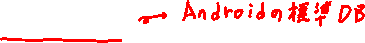 → Androidの標準DB